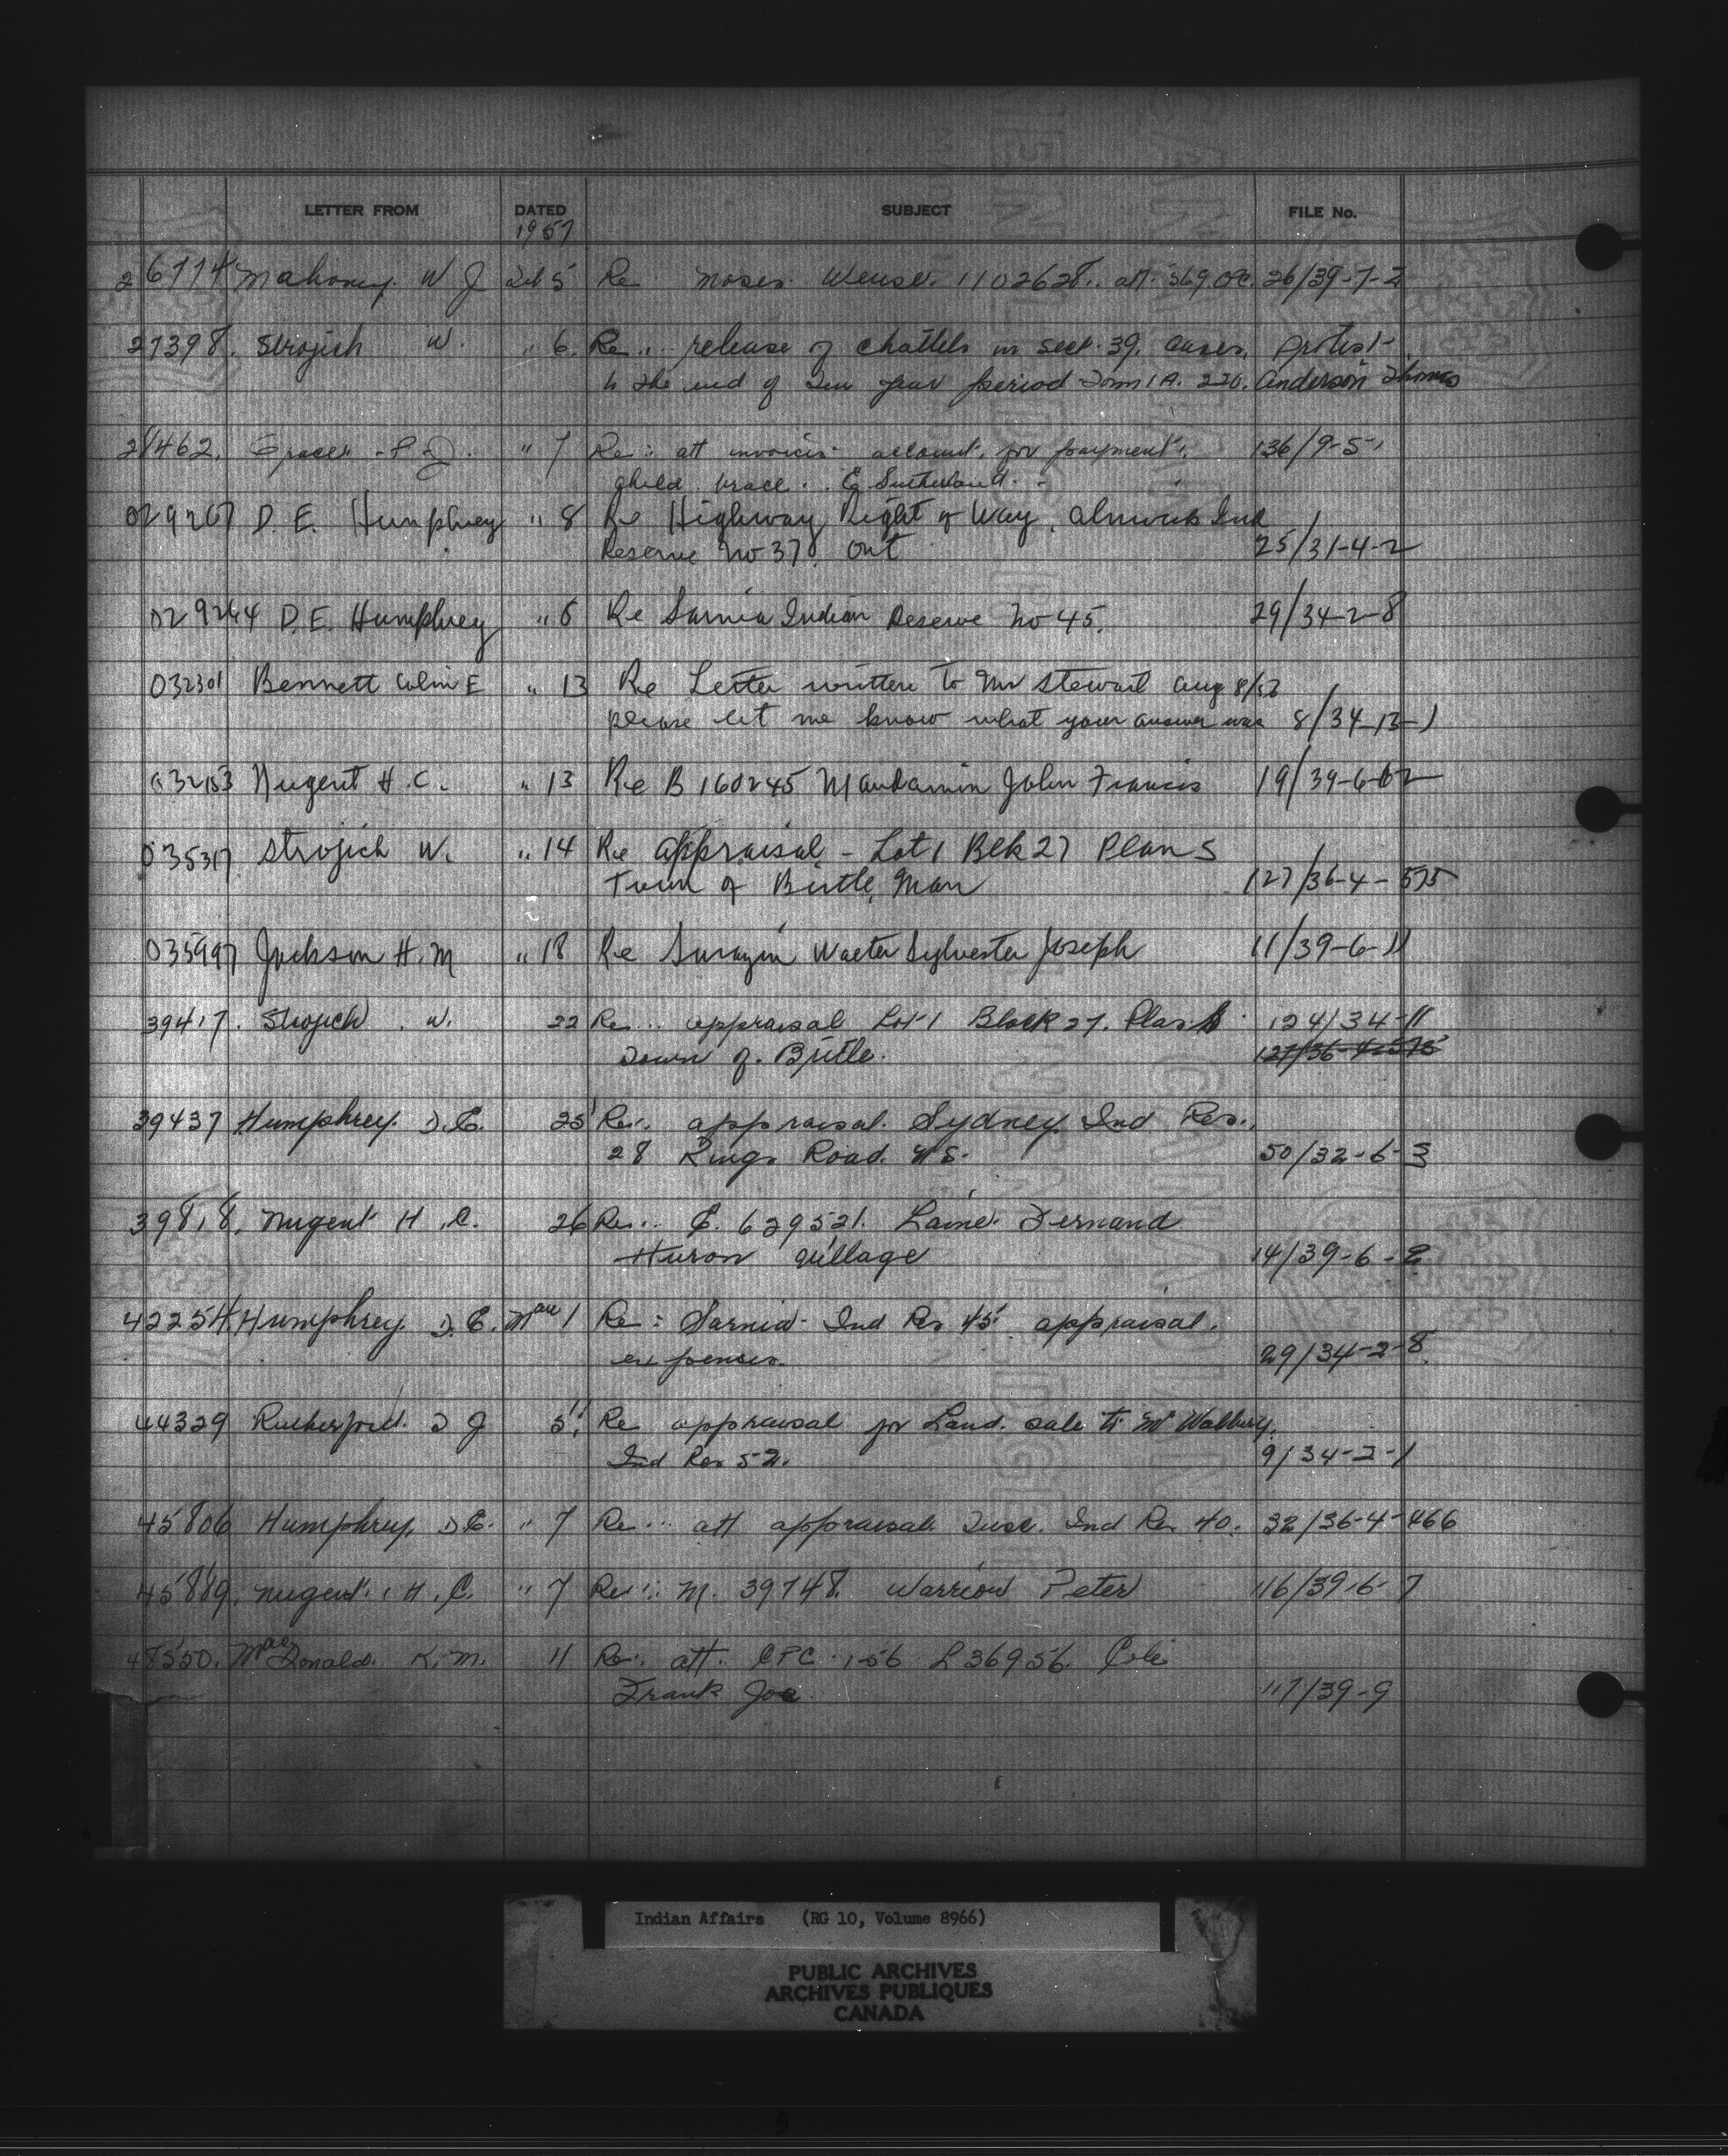 LETTER FROM DATED SUBJECT FILE No.
1957
26114 Mahoney. W J Feb 5 Re Moses. 1102628.. att. 369 26/39-7-2
27398. Strojich W. " 6. Re... release of chattels in sect. 39. cases. protest
to the end of ten year period Form 1A. 220. Anderson Thomas
28462. " 7 Re: att invoices account. for payment. 136/9-5
E Sutherland.
029267 D. E. Humphrey " 8 Re Highway Right of Way, Alnwick Ind
Reserve No 37. Ont 25/31-4-2
029264 D. E. Humphrey " 8 Re Sarnia Indian Reserve No 45. 29/34-2-8
032301 Bennett Colin E " 13 Re Letter written to Mr Stewart Aug 8/56
please let me know what your answer was 8/34-13-1
032153 Nugent H. C. " 13 Re B 160245 Mandamin John Francis 19/39-6-62
035317 Strojich W. " 14 Re Appraisal - Lot 1 Blk 27 Plan S
Town of Birtle, Man 127/36-4-575
035997 Jackson H. M " 18 Re Walter Sylvester Joseph 11/39-6-11
39417. Strojich. W. 22 Re... appraisal Lot 1 Block 27. Plan
Town of. Birtle. 124/34-11
127/36-4-575
39437 Humphrey. D. E. 25 Re:. appraisal. Sydney Ind Res.
28 Kings Road. NS. 50/32-6-3
39818. Nugent H. C. 26 Re:. E. 629521. Lainé Fernand
Huron Village 14/39-6-2
42254. Humphrey D. E. Mar 1 Re: Sarnia Ind Res 45 appraisal.
expenses. 29/34-2-8
44329 Rutherford. D J 5 Re appraisal for Land. sale to Mr
Ind Res 52. 9/34-2-1
45806 Humphrey, D E. " 7 Re... att appraisal Tusc. Ind Res 40. 32/36-4-466
45889. Nugent. H. C. " 7 Re:. M. 39748. Warrior Peter 116/39-6-7
48550. MacDonald. K. M. 11 Re:. att. CPC 156 L 36956.
Frank Joe 117/39-9
Indian Affairs (RG 10, Volume 8966)
PUBLIC ARCHIVES
ARCHIVES PUBLIQUES
CANADA